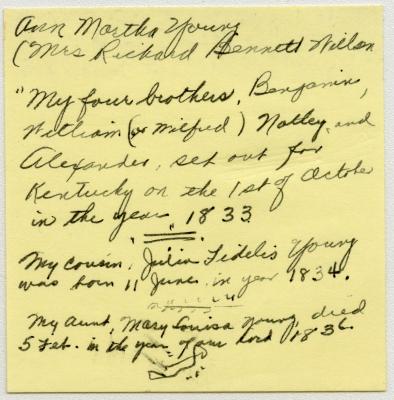 Ann Martha Young
(Mrs Richard Bennett Willson
"My four brothers, Benjamin,
William (or Wilfred) Notley, and
Alexander, set out for
Kentucky on the 1st of October
in the year 1833
My cousin, Julia Fidelis Young
was born 11 June in year 1834.
My Aunt, Mary Louisa Young, died
5 Feb. in the year of our Lord 1836.